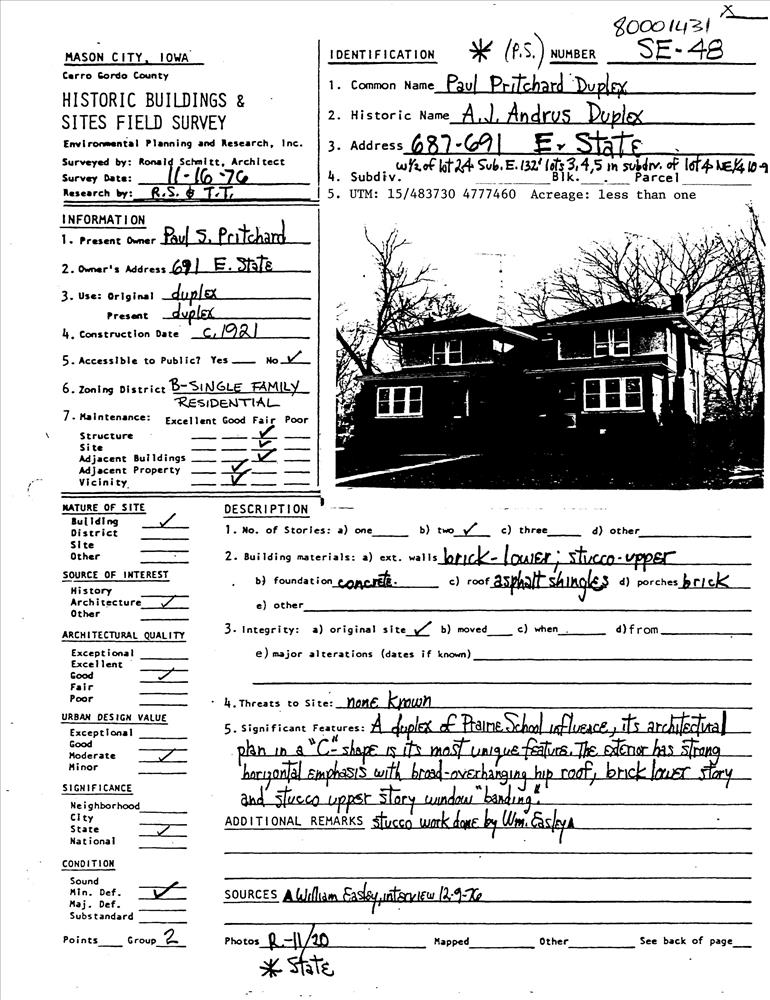 X
80001431
MASON CITY, IOWA
Cerro Gordo County
HISTORIC BUILDINGS &
SITES FIELD SURVEY
Environmental Planning and Research, Inc.
Surveyed by: Ronald Schmitt, Architect
Survey Date: 11-16-76
Research by: R.S. & T.T.
IDENTIFICATION * (P.S.) NUMBER SE-48
1. Common Name Paul Pritchard Duplex
2. Historic Name A.J. Andrus Duplex
3. Address 687-691 E. State
W½ of lot 24 Sub. E. 132' lots 3,4,5 in subdiv. of lot 4 NE¼ 10-9
4. Subdiv. Blk. Parcel
5. UTM: 15/483730 4777460 Acreage: less than one
INFORMATION
1. Present Owner Paul S. Pritchard
2. Owner's Address 691 E. State
3. Use: Original duplex
Present duplex
4. Construction Date c. 1921
5. Accessible to Public? Yes No ✓
6. Zoning District B-SINGLE FAMILY
RESIDENTIAL
7. Maintenance: Excellent Good Fair Poor
Structure ✓
Site ✓
Adjacent Buildings ✓
Adjacent Property ✓
Vicinity ✓
NATURE OF SITE
Building ✓
District
Site
Other
SOURCE OF INTEREST
History
Architecture ✓
Other
ARCHITECTURAL QUALITY
Exceptional
Excellent
Good ✓
Fair
Poor
URBAN DESIGN VALUE
Exceptional
Good
Moderate ✓
Minor
SIGNIFICANCE
Neighborhood
City
State ✓
National
CONDITION
Sound
Min. Def. ✓
Maj. Def.
Substandard
Points Group 2
DESCRIPTION
1. No. of Stories: a) one b) two ✓ c) three d) other
2. Building materials: a) ext. walls brick-lower; stucco-upper
b) foundation concrete. c) roof asphalt shingles d) porches brick
e) other
3. Integrity: a) original site ✓ b) moved c) when d) from
e) major alterations (dates if known)
4. Threats to Site: none known
5. Significant Features: A duplex of Prairie School influence, its architectural
plan in a "C"-shape is its most unique feature. The exterior has strong
horizontal emphasis with broad-overhanging hip roof, brick lower story
and stucco upper story window "banding".
ADDITIONAL REMARKS stucco work done by Wm. Easley ▲
SOURCES ▲ William Easley, interview 12-9-76
Photos R-11/20 Mapped Other See back of page
* State